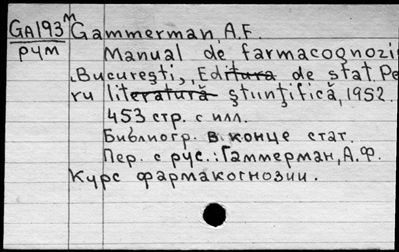 GA193м Gammerman, A.F.
РЧМ Manual de farmacognozi
Bucureşti, Editura de stat. Pe
ru literatură ştiinţifică, 1952.
453 стр. с илл.
Библиогр. в конце стат.
Пер. с рус.: Гаммерман, А.Ф.
Курс фармакогнозии.